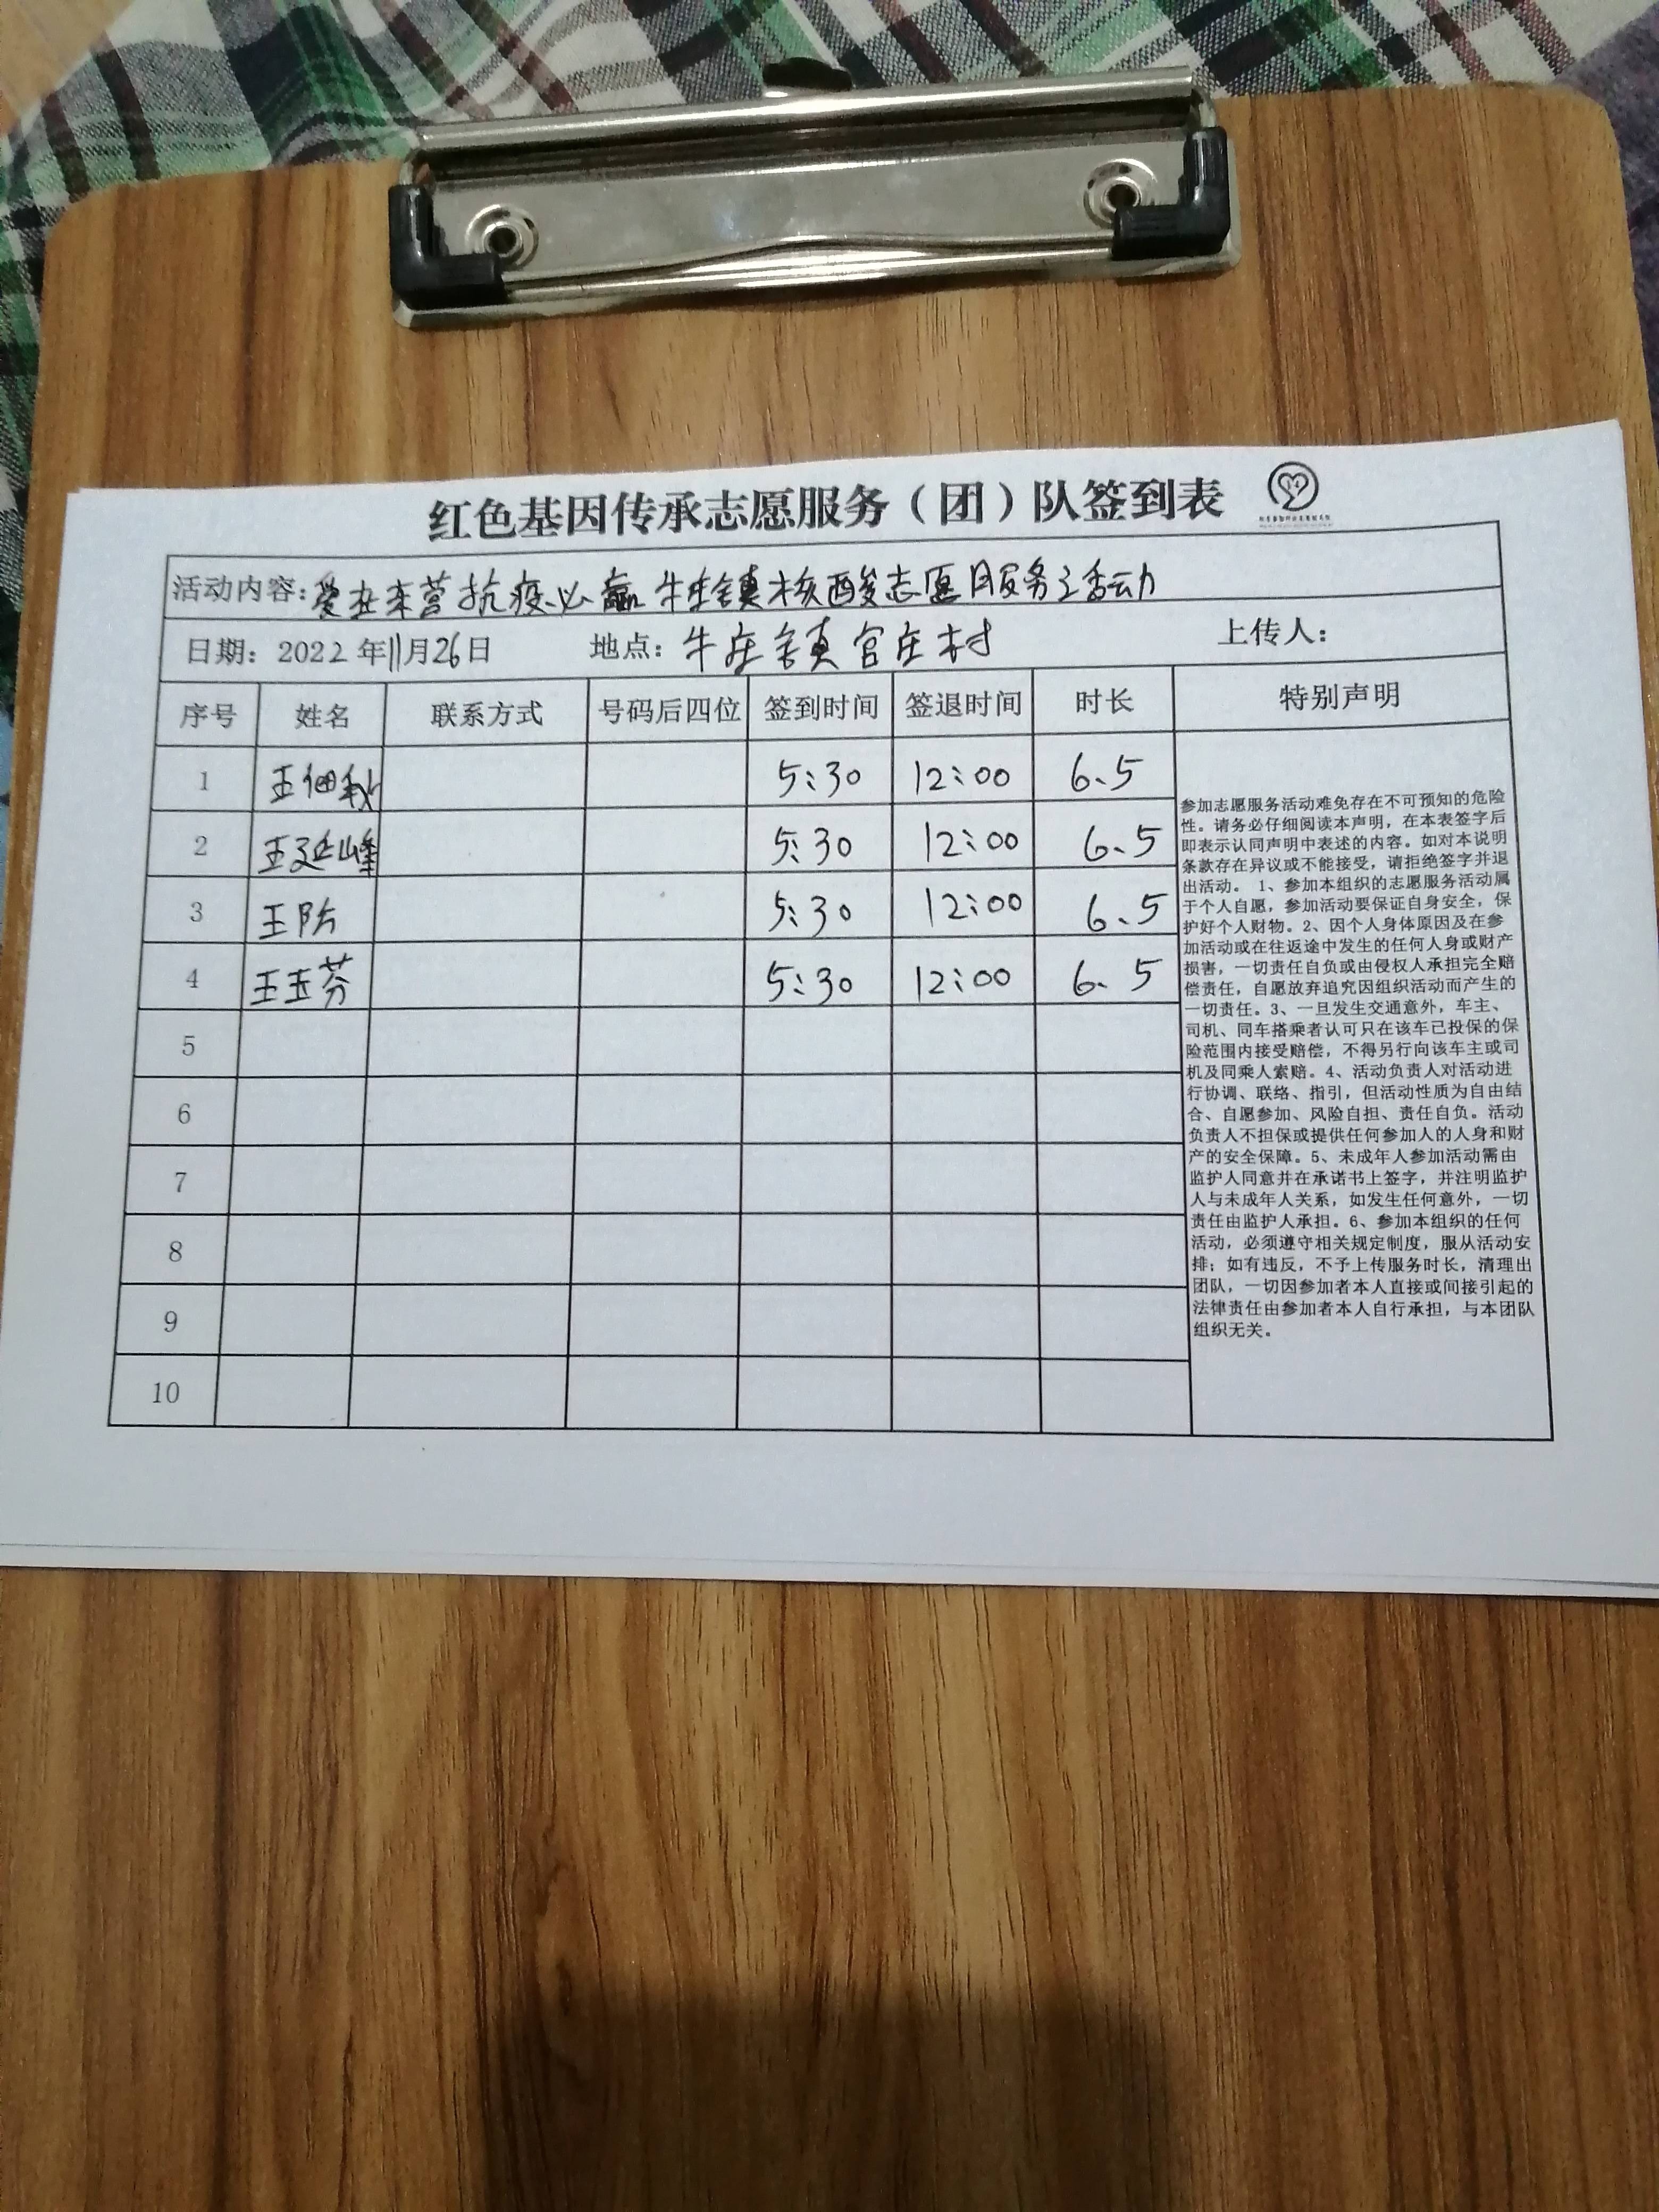 红色基因传承志愿服务（团）队签到表
活动内容：爱在东营 抗疫必赢 牛庄镇核酸志愿服务活动
日期：2022年11月26日 地点：牛庄镇官庄村 上传人：
序号 姓名 联系方式 号码后四位 签到时间 签退时间 时长 特别声明
1 王佃 5:30 12:00 6.5
2 王延峰 5:30 12:00 6.5
3 王防 5:30 12:00 6.5
4 王玉芬 5:30 12:00 6.5
5
6
7
8
9
10
参加志愿服务活动难免存在不可预知的危险
性。请务必仔细阅读本声明，在本表签字后
即表示认同声明中表述的内容。如对本说明
条款存在异议或不能接受，请拒绝签字并退
出活动。 1、参加本组织的志愿服务活动属
于个人自愿，参加活动要保证自身安全，保
护好个人财物。2、因个人身体原因及在参
加活动或在往返途中发生的任何人身或财产
损害，一切责任自负或由侵权人承担完全赔
偿责任，自愿放弃追究因组织活动而产生的
一切责任。3、一旦发生交通意外，车主、
司机、同车搭乘者认可只在该车已投保的保
险范围内接受赔偿，不得另行向该车主或司
机及同乘人索赔。4、活动负责人对活动进
行协调、联络、指引，但活动性质为自由结
合、自愿参加、风险自担、责任自负。活动
负责人不担保或提供任何参加人的人身和财
产的安全保障。5、未成年人参加活动需由
监护人同意并在承诺书上签字，并注明监护
人与未成年人关系，如发生任何意外，一切
责任由监护人承担。6、参加本组织的任何
活动，必须遵守相关规定制度，服从活动安
排；如有违反，不予上传服务时长，清理出
团队，一切因参加者本人直接或间接引起的
法律责任由参加者本人自行承担，与本团队
组织无关。